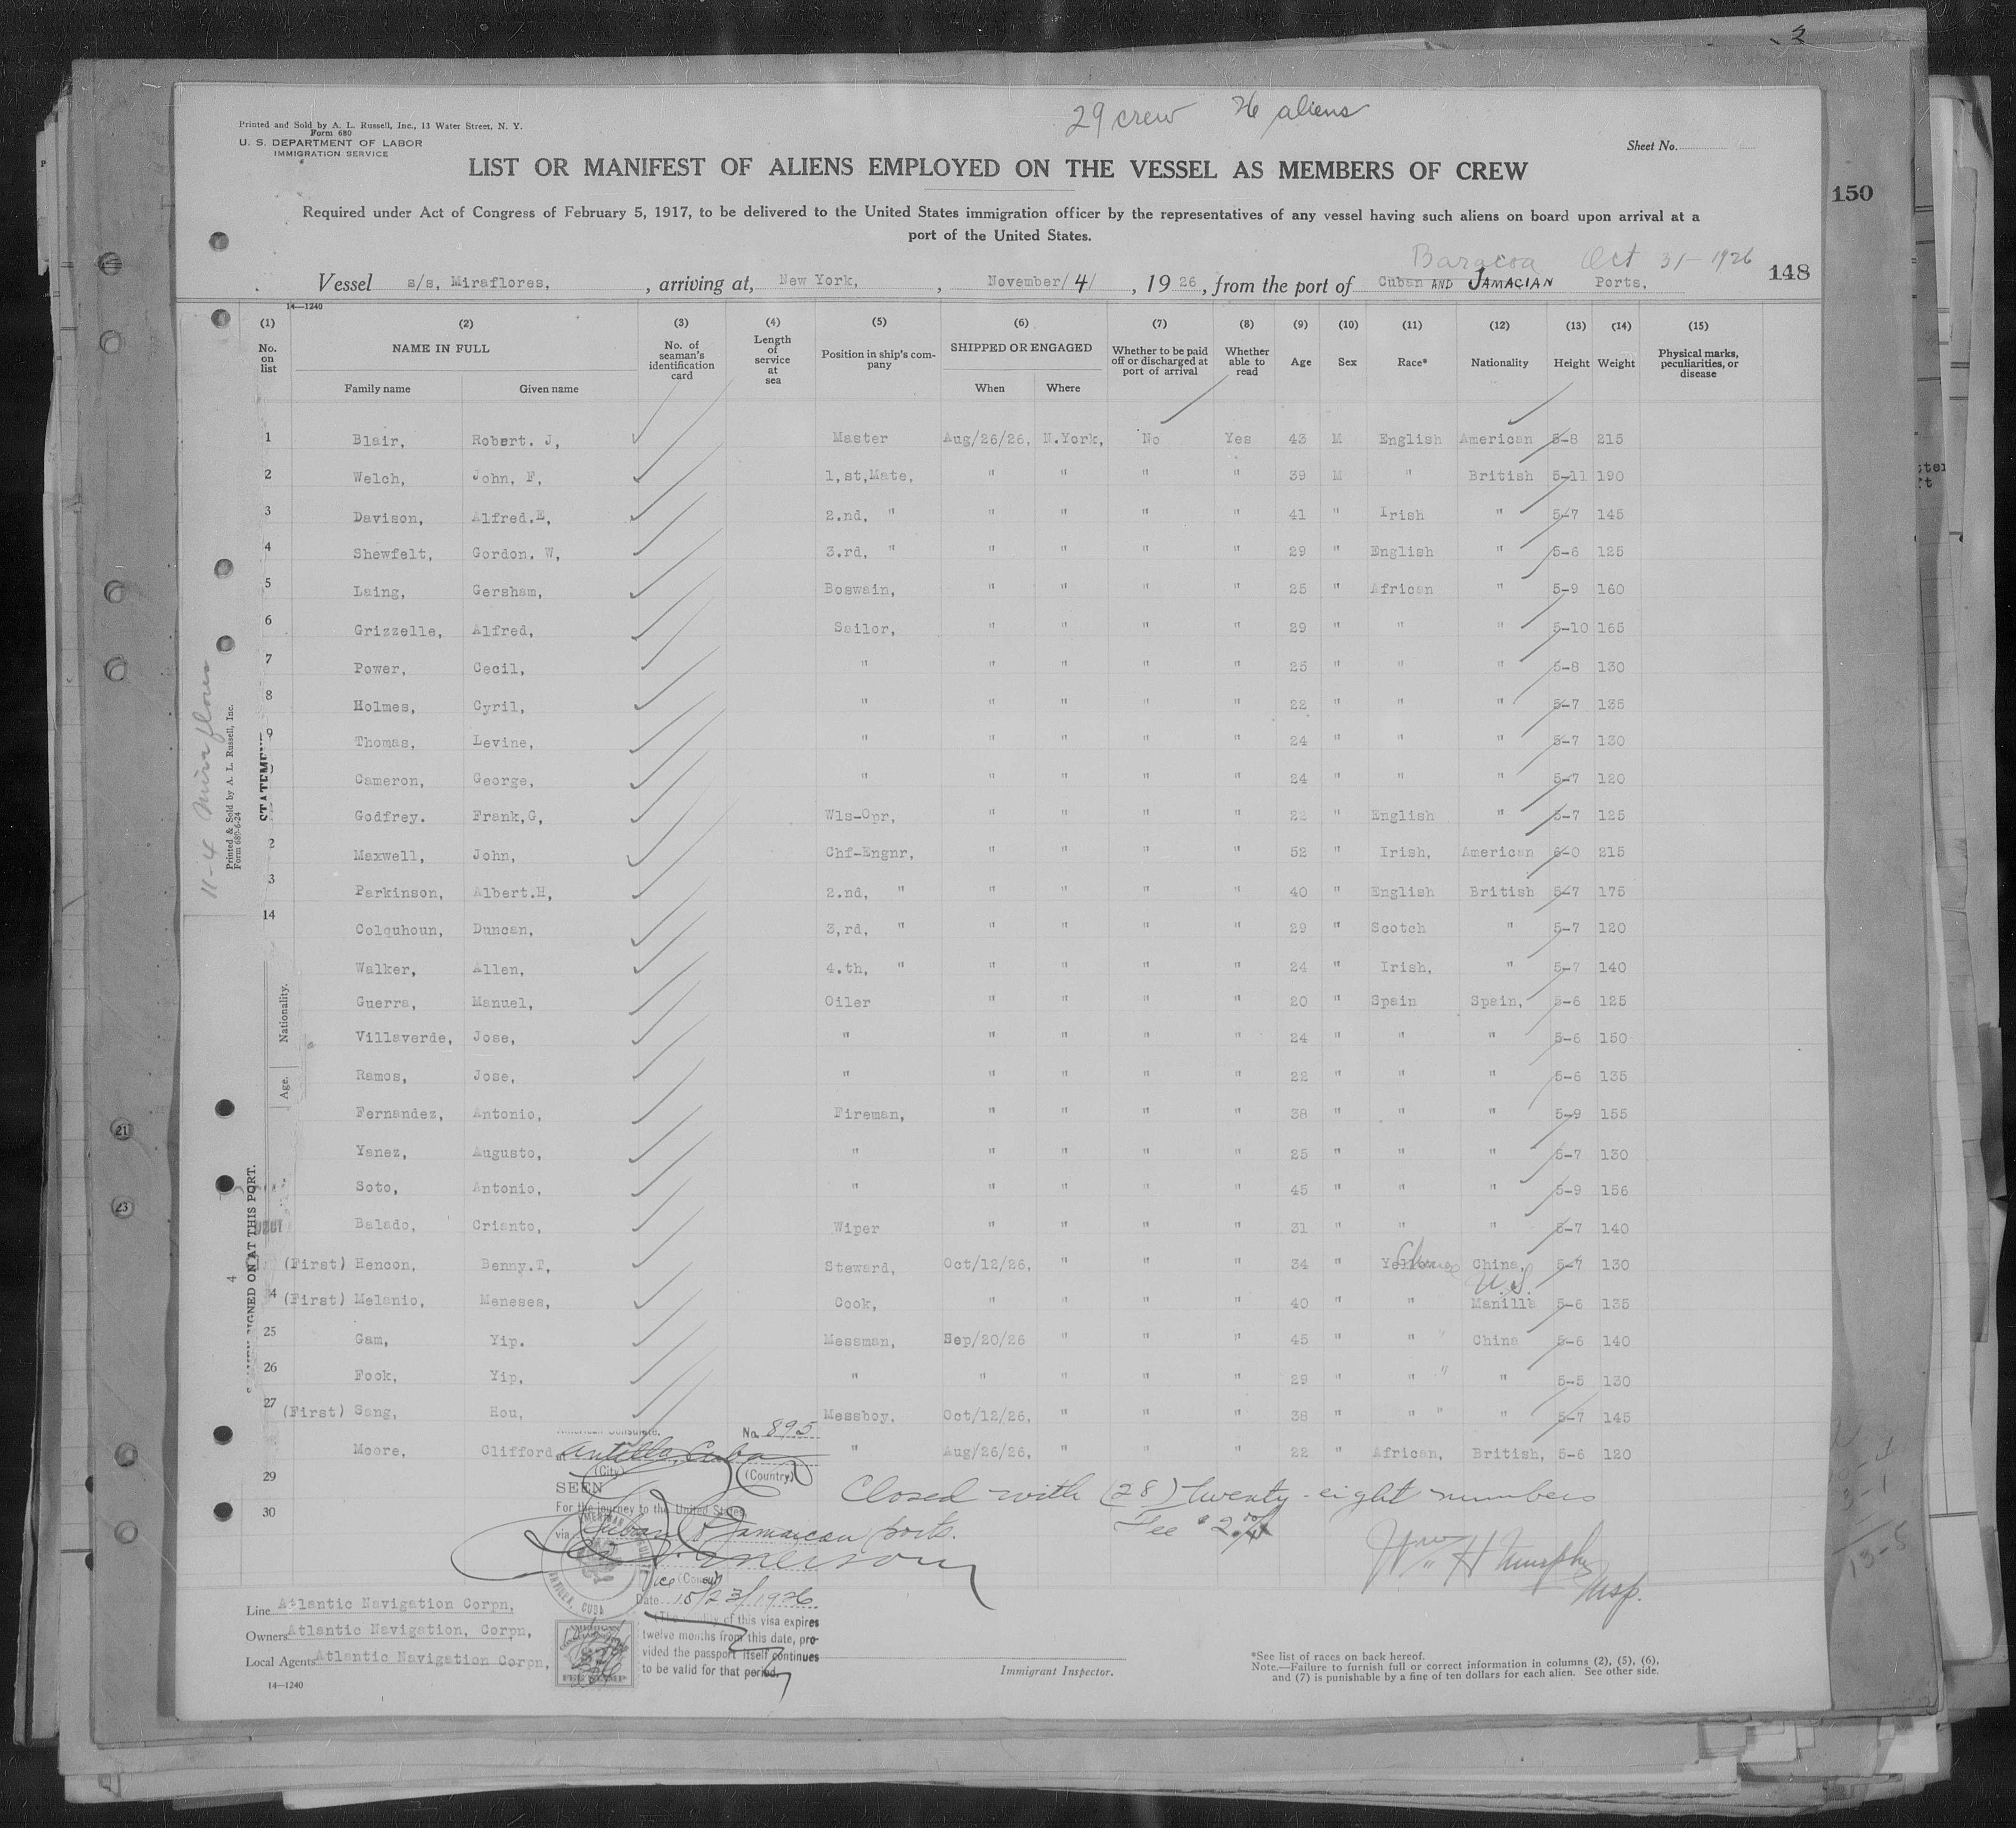 2
29 crew 26 aliens
Printed and Sold by A. L. Russell, Inc., 13 Water Street, N. Y.
Form 680
U. S. DEPARTMENT OF LABOR
IMMIGRATION SERVICE
Sheet No.
LIST OR MANIFEST OF ALIENS EMPLOYED ON THE VESSEL AS MEMBERS OF CREW
150
Required under Act of Congress of February 5, 1917, to be delivered to the United States immigration officer by the representatives of any vessel having such aliens on board upon arrival at a
port of the United States.
Baracoa Oct 31-1926
Vessel s/s, Miraflores, , arriving at, New York, , November/4/ , 1926, from the port of Cuban AND JAMACIAN Ports.
148
14—1240
(1) (2) (3) (4) (5) (6) (7) (8) (9) (10) (11) (12) (13) (14) (15)
No. on list NAME IN FULL No. of seaman's identification card Length of service at sea Position in ship's company SHIPPED OR ENGAGED Whether to be paid off or discharged at port of arrival Whether able to read Age Sex Race* Nationality Height Weight Physical marks, peculiarities, or disease
Family name Given name When Where
1 Blair, Robert. J, Master Aug/26/26, N.York, No Yes 43 M English American 5-8 215
2 Welch, John, F, 1,st,Mate, " " " " 39 M " British 5-11 190
3 Davison, Alfred.E, 2.nd, " " " " " 41 " Irish " 5-7 145
4 Shewfelt, Gordon. W, 3.rd, " " " " " 29 " English " 5-6 125
5 Laing, Gersham, Boswain, " " " " 25 " African " 5-9 160
6 Grizzelle, Alfred, Sailor, " " " " 29 " " " 5-10 165
7 Power, Cecil, " " " " " 25 " " " 5-8 130
8 Holmes, Cyril, " " " " " 22 " " " 5-7 135
9 Thomas, Levine, " " " " " 24 " " " 5-7 130
Cameron, George, " " " " " 24 " " " 5-7 120
Godfrey. Frank,G, Wls-Opr, " " " " 22 " English " 5-7 125
2 Maxwell, John, Chf-Engnr, " " " " 52 " Irish, American 6-0 215
3 Parkinson, Albert.H, 2.nd, " " " " " 40 " English British 5-7 175
14 Colquhoun, Duncan, 3,rd, " " " " " 29 " Scotch " 5-7 120
Walker, Allen, 4.th, " " " " " 24 " Irish, " 5-7 140
Guerra, Manuel, Oiler " " " " 20 " Spain Spain, 5-6 125
Villaverde, Jose, " " " " " 24 " " " 5-6 150
Ramos, Jose, " " " " " 22 " " " 5-6 135
Fernandez, Antonio, Fireman, " " " " 38 " " " 5-9 155
Yanez, Augusto, " " " " " 25 " " " 5-7 130
Soto, Antonio, " " " " " 45 " " " 5-9 156
Balado, Crianto, Wiper " " " " 31 " " " 5-7 140
(First) Hencon, Benny.T, Steward, Oct/12/26, " " " 34 " Yellow Chinese China, 5-7 130
U.S.
(First) Melanio, Meneses, Cook, " " " " 40 " " Manilla 5-6 135
25 Gam, Yip. Messman, Sep/20/26 " " " 45 " " " China 5-6 140
26 Fook, Yip, " " " " " 29 " " " " 5-5 130
27 (First) Sang, Hou, Messboy, Oct/12/26, " " " 38 " " " " 5-7 145
Moore, Clifford " Aug/26/26, " " " 22 " African, British, 5-6 120
29
30
11-4 Miraflores
Printed & Sold by A. L. Russell, Inc.
Form 689-6-24
STATEMENT
Nationality.
Age.
SIGNED ON AT THIS PORT.
4
21
23
American Consulate,
No. 895
at Antilla, Cuba
(City) (Country)
SEEN
For the journey to the United States
via Cuban & Jamaican ports.
Vice (Consul)
Date 10/23/1926
The validity of this visa expires
twelve months from this date, pro-
vided the passport itself continues
to be valid for that period.
AMERICAN CONSULATE
ANTILLA, CUBA
FEE STAMP
Closed with (28) twenty-eight numbers
Fee $2.00
Wm H Murphy
Insp.
13-5
Line Atlantic Navigation Corpn,
Owners Atlantic Navigation, Corpn,
Local Agents Atlantic Navigation Corpn,
14—1240
Immigrant Inspector.
*See list of races on back hereof.
Note.—Failure to furnish full or correct information in columns (2), (5), (6),
and (7) is punishable by a fine of ten dollars for each alien. See other side.